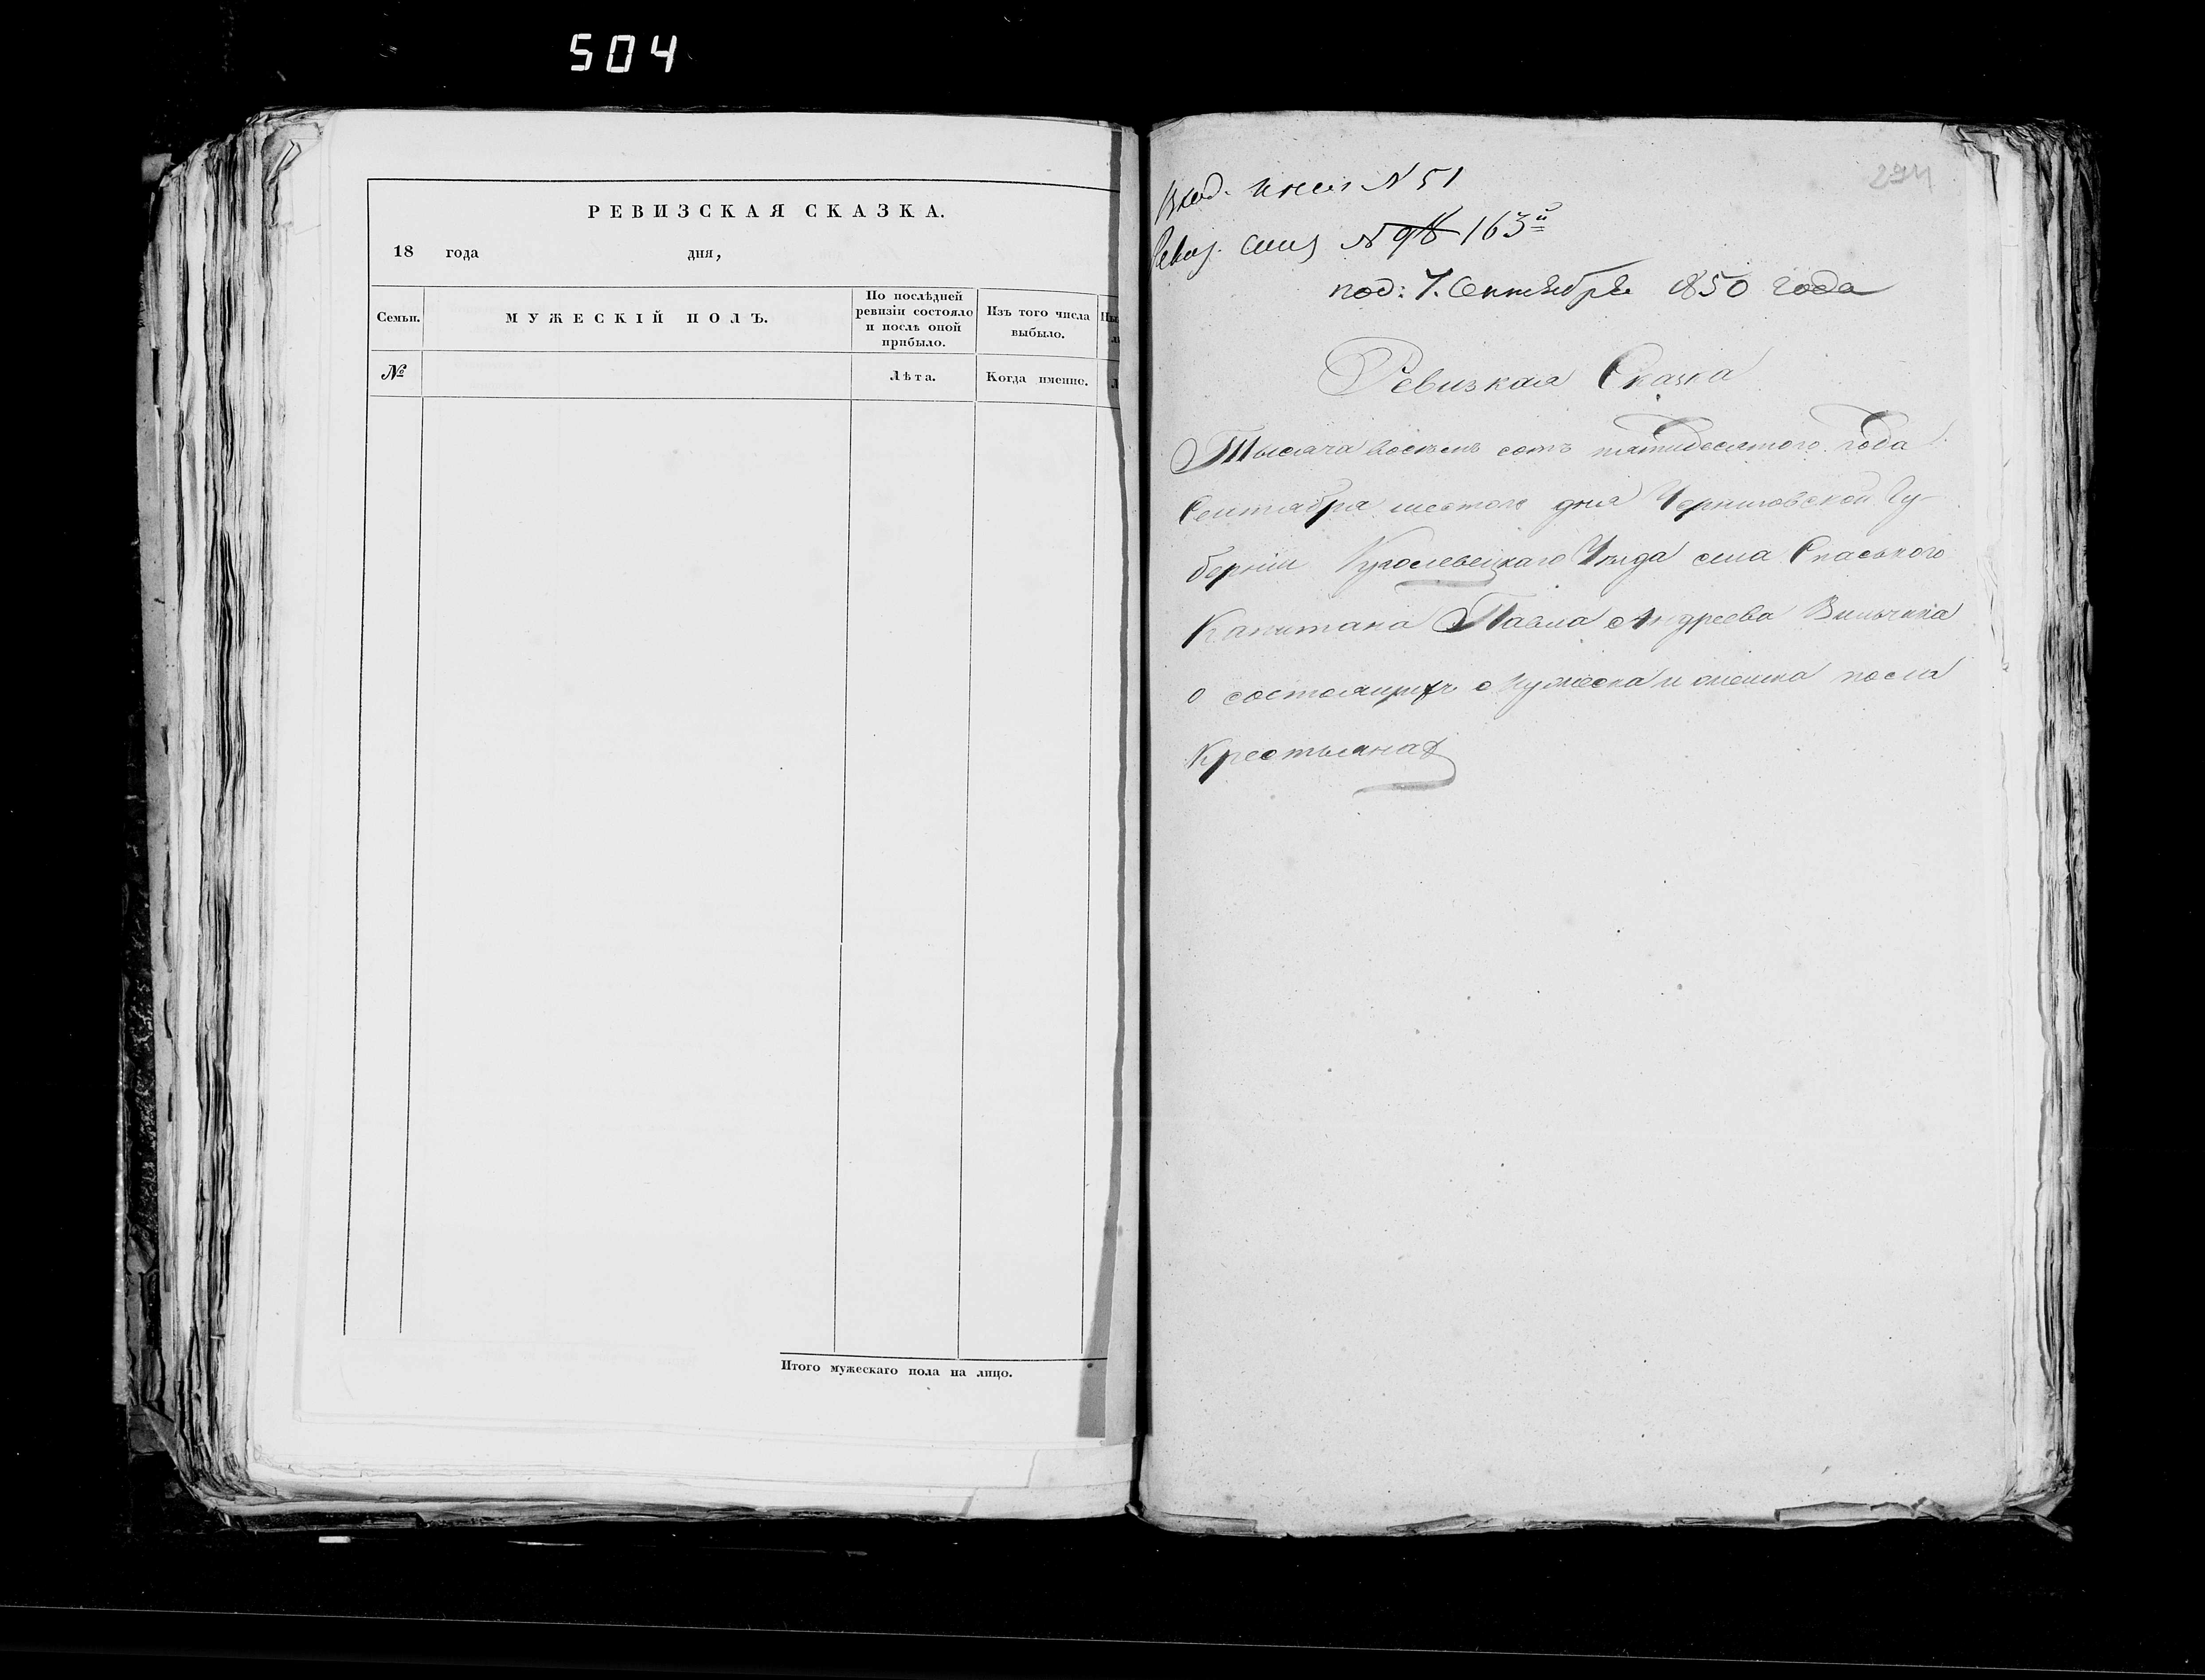 504
РЕВИЗСКАЯ СКАЗКА.
18 года дня,
Семьи.
МУЖЕСКІЙ ПОЛЪ.
По послѣдней
ревизіи состояло
и послѣ оной
прибыло.
Изъ того числа
выбыло.
№
Лѣта.
Когда именно.
Итого мужескаго пола на лицо.
294
Вход. N 51
Ревиз. N 98 163й
под: 7. Сентября 1850 года
Ревизкая Сказка
Тысяча восемь сотъ пятидесятого года
Сентября шестого дня Черниговской Гу-
берніи Кролевецкаго Уезда села Спаського
Капитана Павла Андреева
о состоящихъ Мужеска и женска пола
Крестьянах